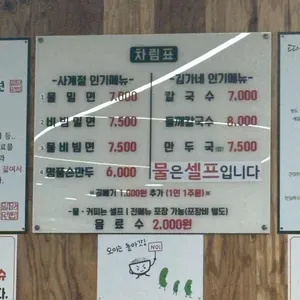 차림표
-사계절 인기메뉴-
1. 물 밀 면 7,000
2. 비 빔 밀 면 7,500
3. 물 비 빔 면 7,500
4. 명품손만두 6,000
-김가네 인기메뉴-
칼 국 수 7,000
들깨칼국수 8,000
만 두 국 7,500
물은셀프입니다
※곱빼기 1,000원 추가 (1인 1주문)※
-물・커피는 셀프 | 전메뉴 포장 가능(포장비 별도)
음 료 수 2,000원
NO!